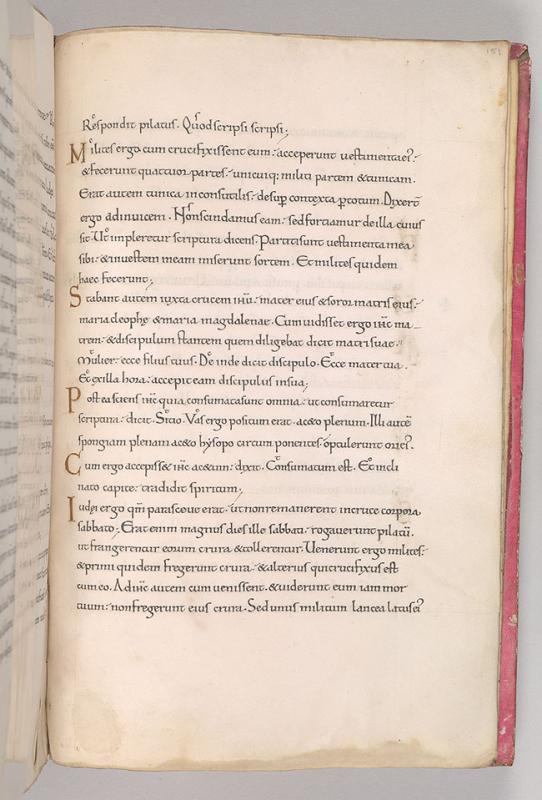 151
Respondit pilatus. Quod scripsi scripsi;
Milites ergo cum crucifixissent eum: acceperunt uestimenta ei':
& fecerunt quattuor partes: unicuiq; militi partem & tunicam.
Erat autem tunica inconsutilis: desup contexta p totum. Dixert̄
ergo adinuicem. Non scindamus eam: sed fortiamur de illa cuius
sit. Ut impleretur scriptura dicens. Partiti sunt uestimenta mea
sibi: & in uestem meam miserunt sortem. Et milites quidem
haec fecerunt;
Stabant autem iuxta crucem ihū: mater eius & soror matris eius:
maria cleophę & maria magdalenae. Cum uidisset ergo ihc ma
trem: & discipulum stantem quem diligebat dicit matri suae:
Mulier: ecce filius tuus. De inde dicit discipulo. Ecce mater tua.
Et ex illa hora: accepit eam discipulus in sua;
Postea sciens ihc quia consumata sunt omnia: ut consumaretur
scriptura: dicit. Sitio. Vas ergo positum erat aceto plenum. Illi autē
spongiam plenam aceto hysopo circum ponentes: optulerunt ori ei'.
Cum ergo accepiss& ihc acetum: dixit. Consumatum est. Et incli
nato capite: tradidit spiritum;
Iudęi ergo qm̄ parasceue erat: ut non remanerent in cruce corpora
sabbato: Erat enim magnus dies ille sabbati: rogauerunt pilatū.
ut frangerentur eorum crura & tollerentur. Uenerunt ergo milites:
& primi quidem fregerunt crura: & alterius qui crucifixus est
cum eo. Ad ihc autem cum uenissent: & uiderunt eum iam mor
tuum: non fregerunt eius crura. Sed unus militum lancea latus ei'